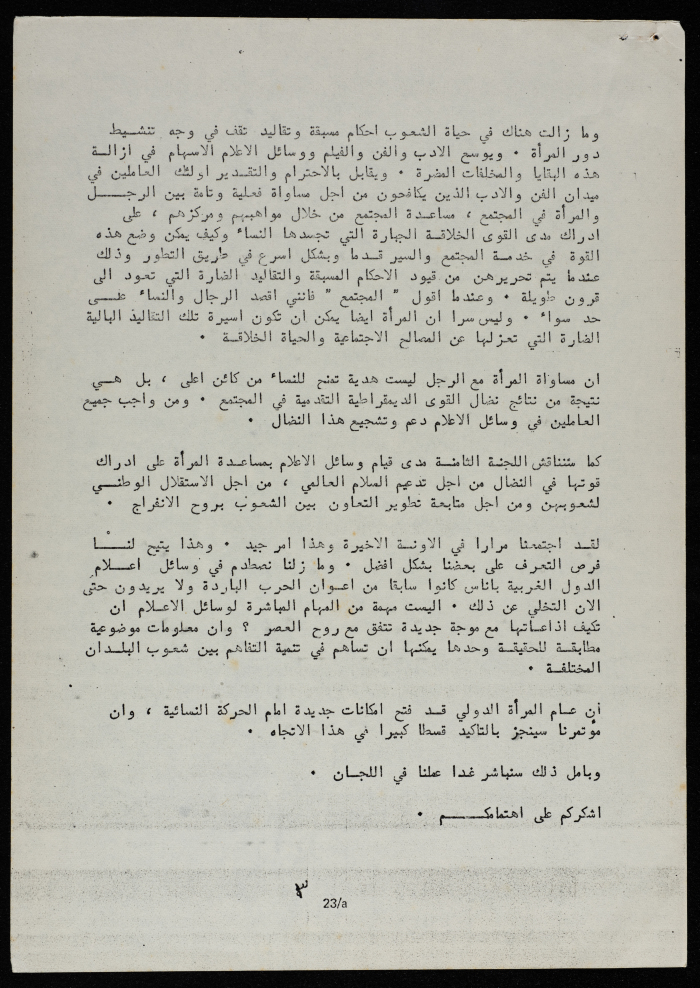 وما زالت هناك في حياة الشعوب احكام مسبقة وتقاليد تقف في وجه تنشيط
دور المرأة . وبوسع الادب والفن والفيلم ووسائل الاعلام الاسهام في ازالة
هذه البقايا والمخلفات المضرة . ويقابل بالاحترام والتقدير اولئك العاملين في
ميدان الفن والادب الذين يكافحون من اجل مساواة فعلية وتامة بين الرجل
والمرأة في المجتمع ، مساعدة المجتمع من خلال مواهبهم ومركزهم ، على
ادراك مدى القوى الخلاقة الجبارة التي تجسدها النساء وكيف يمكن وضع هذه
القوة في خدمة المجتمع والسير قدما وبشكل اسرع في طريق التطور وذلك
عندما يتم تحريرهن من قيود الاحكام المسبقة والتقاليد الضارة التي تعود الى
قرون طويلة . وعندما اقول " المجتمع " فانني اقصد الرجال والنساء على
حد سواء . وليس سرا ان المرأة ايضا يمكن ان تكون اسيرة تلك التقاليد البالية
الضارة التي تعزلها عن المصالح الاجتماعية والحياة الخلاقة .
ان مساواة المرأة مع الرجل ليست هدية تمنح للنساء من كائن اعلى ، بل هي
نتيجة من نتائج نضال القوى الديمقراطية التقدمية في المجتمع . ومن واجب جميع
العاملين في وسائل الاعلام دعم وتشجيع هذا النضال .
كما ستناقش اللجنة الثامنة مدى قيام وسائل الاعلام بمساعدة المرأة على ادراك
قوتها في النضال من اجل تدعيم السلام العالمي ، من اجل الاستقلال الوطني
لشعوبهن ومن اجل متابعة تطوير التعاون بين الشعوب بروح الانفراج .
لقد اجتمعنا مرارا في الاونة الاخيرة وهذا امر جيد . وهذا يتيح لنا
فرص التعرف على بعضنا بشكل افضل . وما زلنا نصطدم في وسائل اعلام
الدول الغربية باناس كانوا سابقا من اعوان الحرب الباردة ولا يريدون حتى
الان التخلي عن ذلك . اليست مهمة من المهام المباشرة لوسائل الاعلام ان
تكيف اذاعاتها مع موجة جديدة تتفق مع روح العصر ؟ وان معلومات موضوعية
مطابقة للحقيقة وحدها يمكنها ان تساهم في تنمية التفاهم بين شعوب البلدان
المختلفة .
ان عام المرأة الدولي قد فتح امكانات جديدة امام الحركة النسائية ، وان
مؤتمرنا سينجز بالتاكيد قسطا كبيرا في هذا الاتجاه .
وبامل ذلك سنباشر غدا عملنا في اللجان .
اشكركم على اهتمامكم .
23/a